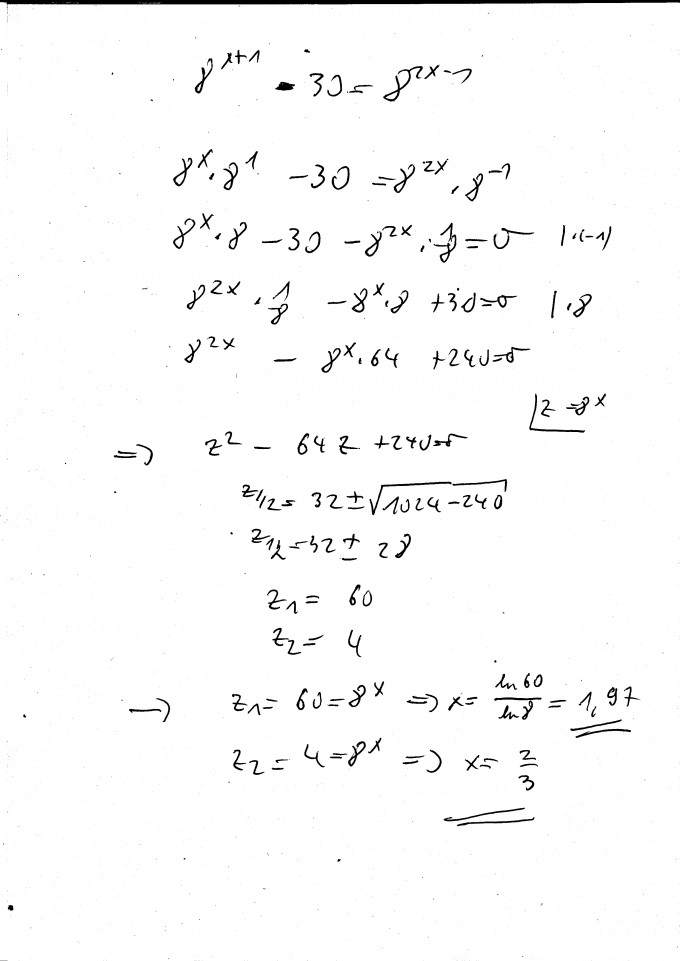 8^{x+1} - 30 = 8^{2x-1}
8^x · 8^1 - 30 = 8^{2x} · 8^{-1}
8^x · 8 - 30 - 8^{2x} · 1/8 = 0 | ·(-1)
8^{2x} · 1/8 - 8^x · 8 + 30 = 0 | · 8
8^{2x} - 8^x · 64 + 240 = 0
z = 8^x
=> z^2 - 64 z + 240 = 0
z_{1/2} = 32 ± √(1024 - 240)
z_{1/2} = 32 ± 28
z_1 = 60
z_2 = 4
→ z_1 = 60 = 8^x => x = ln 60 / ln 8 = 1,97
z_2 = 4 = 8^x => x = 2/3